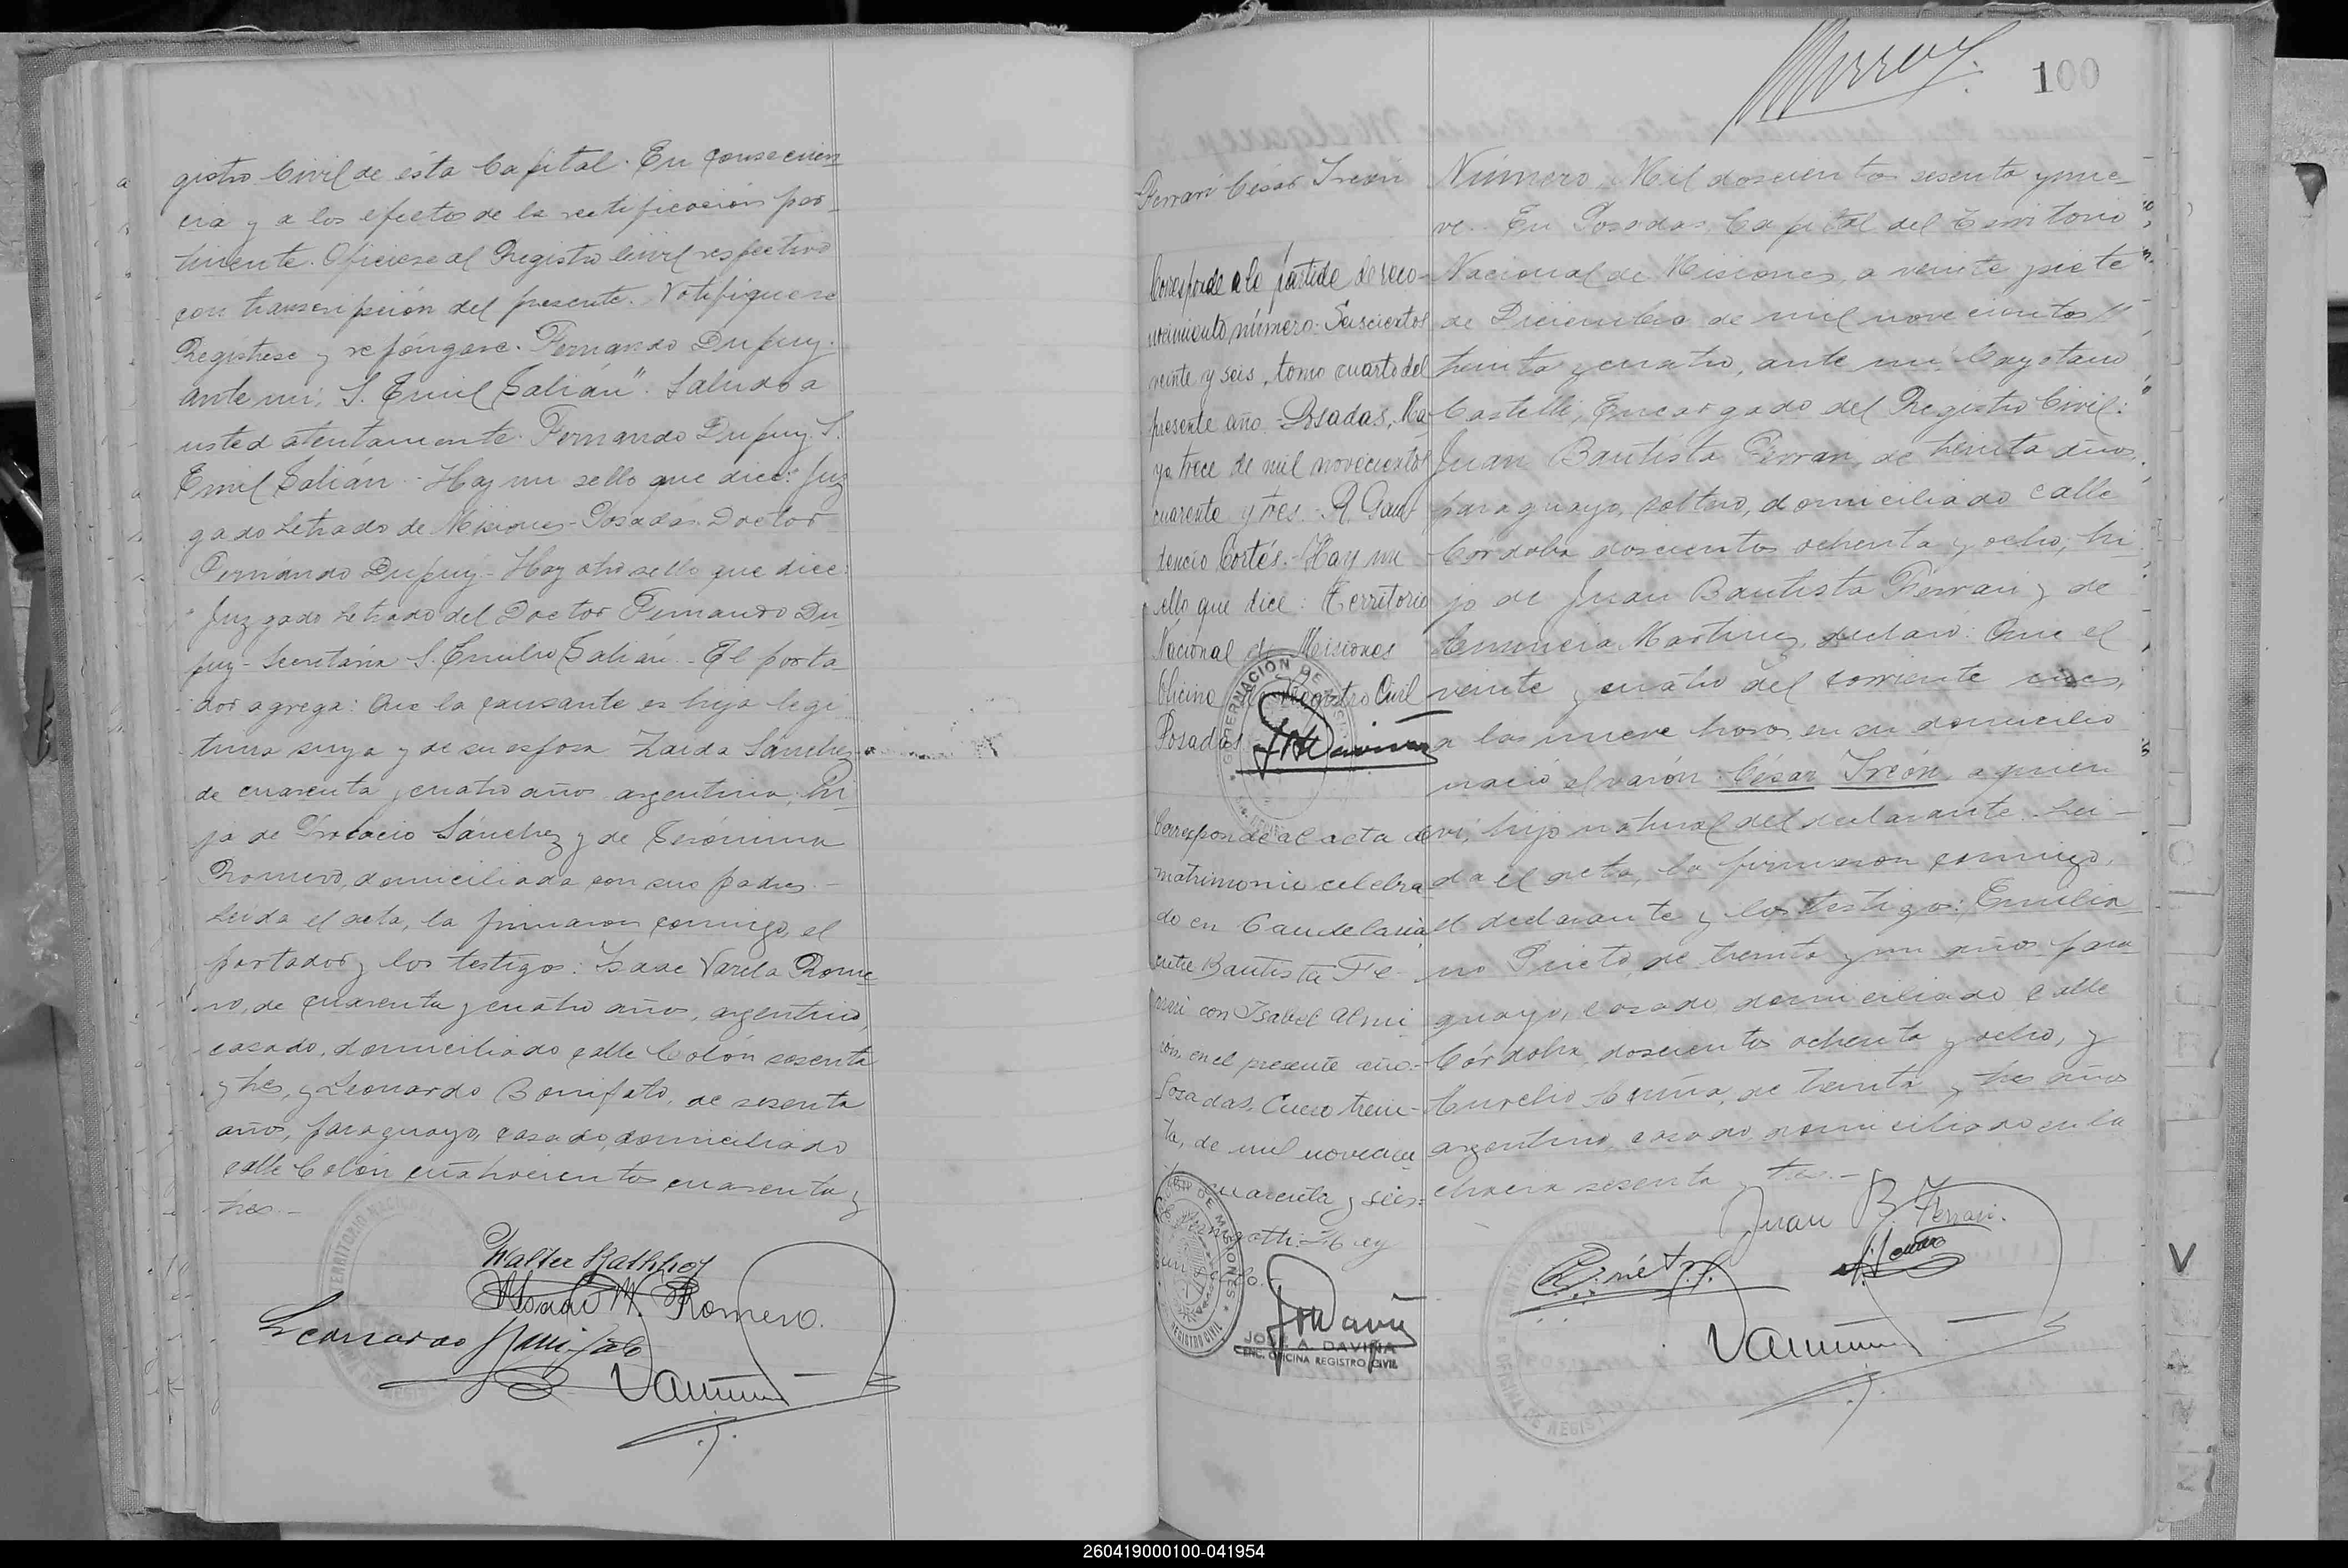 gistro Civil de ésta Capital. En consecuen
cia y a los efectos de la rectificación per
tinente. Ofíciese al Registro Civil respectivo
con transcripción del presente. Notifíquese
Regístrese y repóngase. Fernando Dupuy.
ante mi, S. Emil Salián". Saludo a
usted atentamente. Fernando Dupuy. S.
Emil Salián - Hay un sello que dice: Juz
gado Letrado de Misiones - Posadas. Doctor
Fernando Dupuy - Hay otro sello que dice:
Juzgado Letrado del Doctor Fernando Du
puy - Secretaría S. Emilio Salián. - El porta
dor agrega: Que la causante es hija legí
tima suya y de su esposa Zaida Sánchez
de cuarenta y cuatro años argentina, hi
ja de Sánchez y de Gerónima
Romero, domiciliada con sus padres. -
Leída el acta, la firmaron conmigo, el
portador y los testigos: Isaac Varela Rome
ro, de cuarenta y cuatro años, argentino,
casado, domiciliado calle Colón sesenta
y tres, y Leonardo Bonifato, de sesenta
años, paraguayo, casado, domiciliado
calle Colón cuatrocientos cuarenta y
tres. -
Walter
Romero.
Leonardo
100
Ferrari César Ireón
Corresponde a la partida de reco-
nocimiento número: Seiscientos
veinte y seis, tomo cuarto del
presente año - Posadas, Ma
yo trece de mil novecientos
cuarenta y tres. - R. Gau
dencio Cortés. - Hay un
sello que dice: Territorio
Nacional de Misiones
Oficina de Registro Civil
Posadas
GOBERNACION DE
Corresponde al acta de
matrimonio celebra
do en Candelaria
entre Bautista Fe
rrari con Isabel Almi
rón, en el presente año. -
Posadas, Enero trein-
ta, de mil novecien
cuarenta y seis =
Hay
un sello. -
DE MISIONES
REGISTRO CIVIL
JOSE A. DAVIÑA
ENC. OFICINA REGISTRO CIVIL
Número Mil doscientos sesenta y nue-
ve. - En Posadas, Capital del Territorio
Nacional de Misiones, a veinte y siete
de Diciembre de mil novecientos //
treinta y cuatro, ante mi Cayetano
Castelli, Encargado del Registro Civil:
Juan Bautista Ferrari, de treinta años,
paraguayo, soltero, domiciliado calle
Córdoba doscientos ochenta y ocho, hi
jo de Juan Bautista Ferrari y de
Martinez, declaró: Que el
veinte y cuatro del corriente mes,
a las nueve horas, en su domicilio
nació el varón César Ireón, a quien
vi, hijo natural del declarante. Leí-
da el acta, la firmaron conmigo,
el declarante y los testigos: Emilia
no Prieto, de treinta y un años para
guayo, casado, domiciliado calle
Córdoba doscientos ochenta y ocho, y
Aurelio Acuña, de treinta y tres años
argentino, casado, domiciliado en la
chacra sesenta y tres. -
Juan B. Ferrari.
260419000100-041954